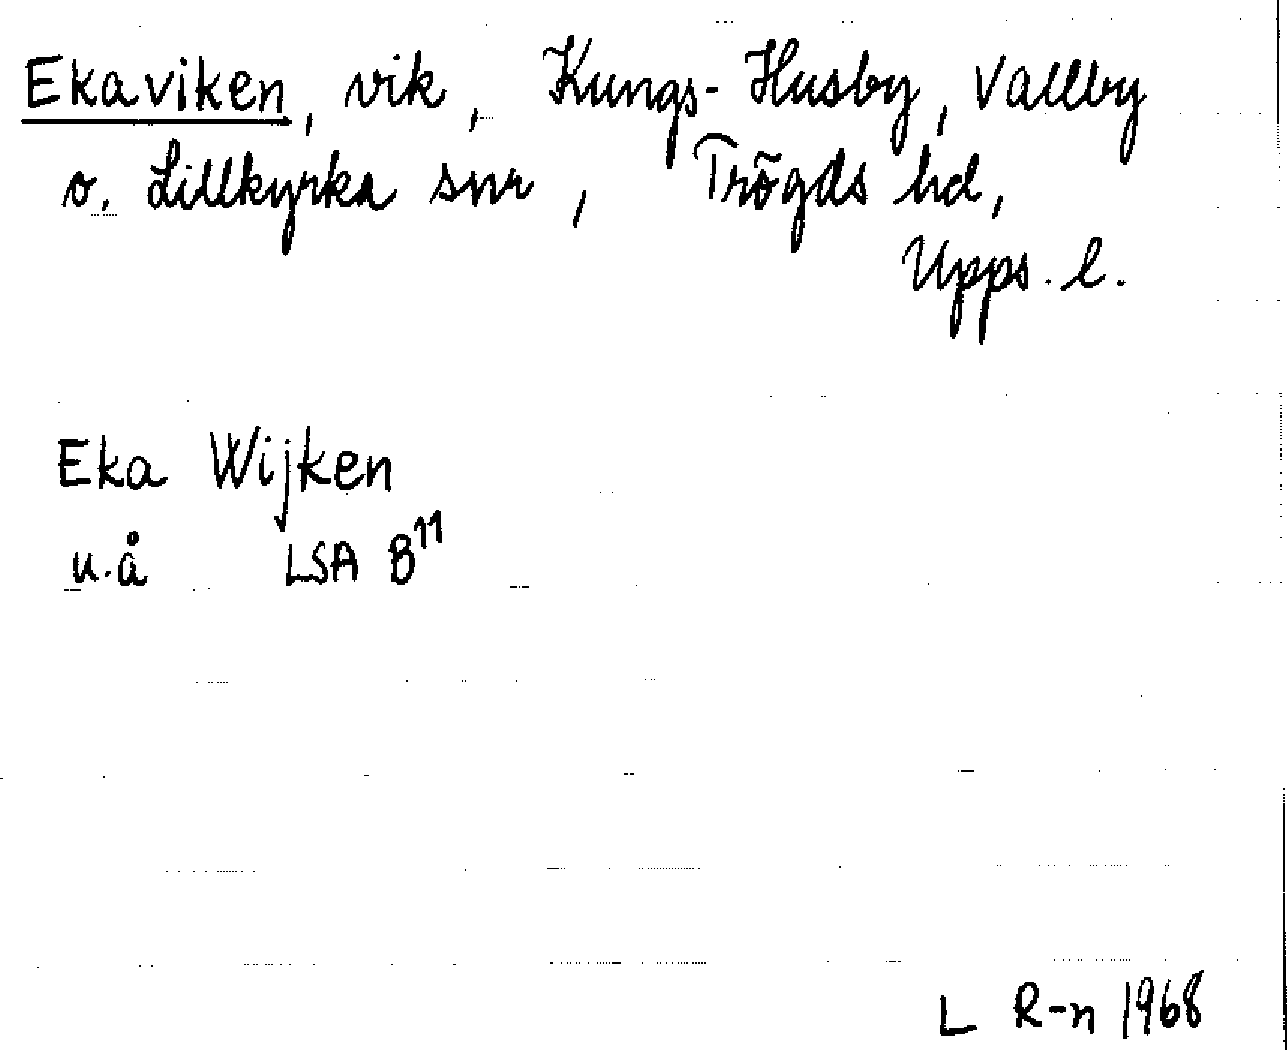 Ekaviken, vik, Kungs-Husby, Vallby
o. Lillkyrka snr, Trögds hd,
Upps. l.
Eka Wijken
u.å LSA B¹¹
L R-n 1968